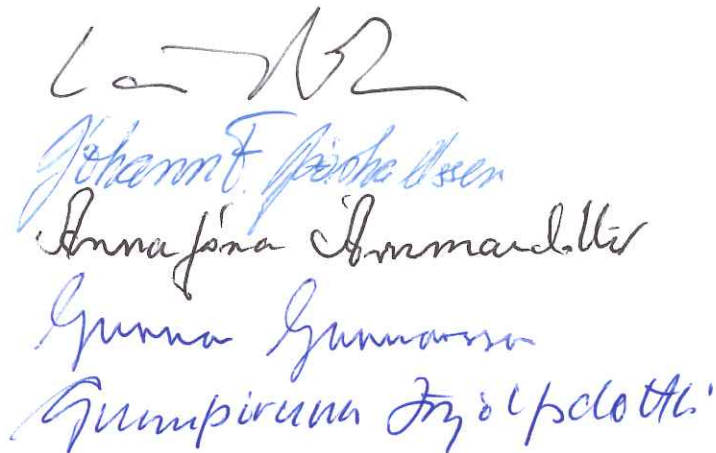 Jóhann F. Þórhallsson
Anna Jóna Árnmarsdóttir
Gunnar Gunnarsson
Gunnþórunn Ingólfsdóttir